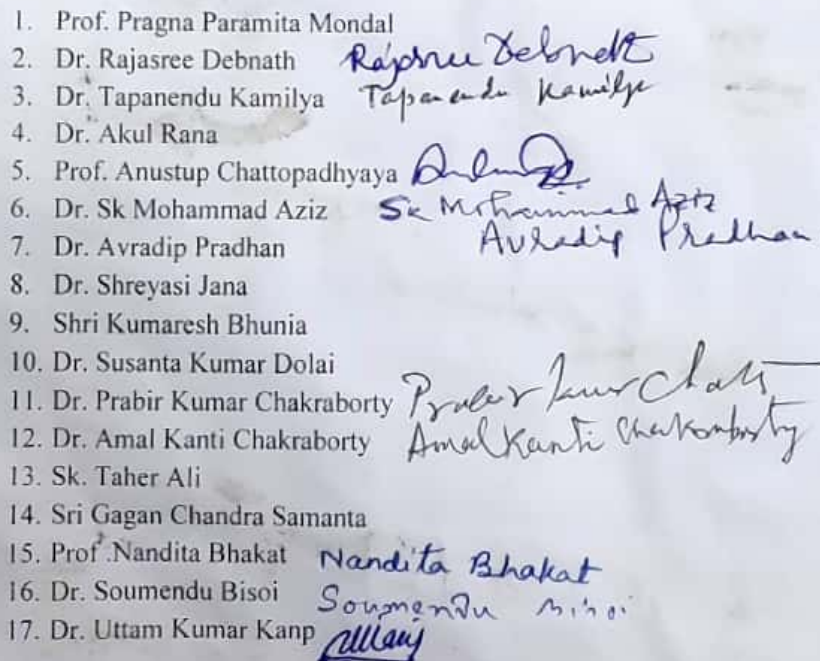 1. Prof. Pragna Paramita Mondal
2. Dr. Rajasree Debnath Rajasree Debnath
3. Dr. Tapanendu Kamilya Tapanendu Kamilya
4. Dr. Akul Rana
5. Prof. Anustup Chattopadhyaya
6. Dr. Sk Mohammad Aziz Sk Mohammad Aziz
7. Dr. Avradip Pradhan Avradip Pradhan
8. Dr. Shreyasi Jana
9. Shri Kumaresh Bhunia
10. Dr. Susanta Kumar Dolai
11. Dr. Prabir Kumar Chakraborty Prabir Kumar
12. Dr. Amal Kanti Chakraborty Amal Kanti Chakraborty
13. Sk. Taher Ali
14. Sri Gagan Chandra Samanta
15. Prof .Nandita Bhakat Nandita Bhakat
16. Dr. Soumendu Bisoi Soumendu Bisoi
17. Dr. Uttam Kumar Kanp